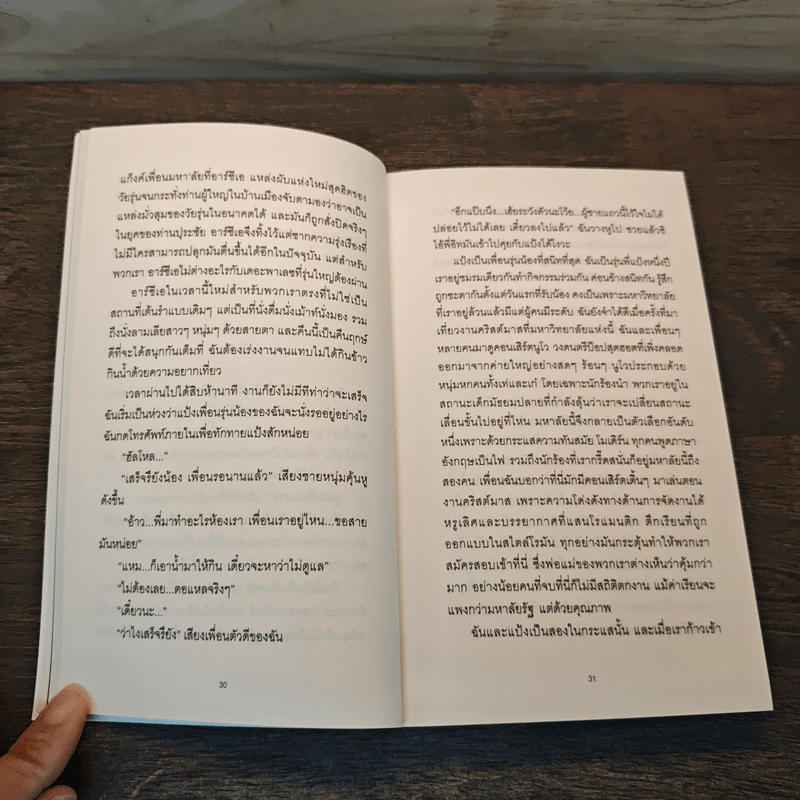 แก๊งค์เพื่อนมหา'ลัยที่อาร์ซีเอ แหล่งผับแห่งใหม่สุดฮิตของ
วัยรุ่นจนกระทั่งท่านผู้ใหญ่ในบ้านเมืองจับตามองว่าอาจเป็น
แหล่งมั่วสุมของวัยรุ่นในอนาคตได้ และมันก็ถูกสั่งปิดจริงๆ
ในยุคของท่านปุระชัย อาร์ซีเอจึงทิ้งไว้แต่ซากความรุ่งเรืองที่
ไม่มีใครสามารถปลุกมันตื่นขึ้นได้อีกในปัจจุบัน แต่สำหรับ
พวกเรา อาร์ซีเอไม่ต่างอะไรกับเดอะพาเลซที่รุ่นใหญ่ต้องผ่าน
อาร์ซีเอในเวลานี้ใหม่สำหรับพวกเราตรงที่ไม่ใช่เป็น
สถานที่เต้นรำแบบเดิมๆ แต่เป็นที่นั่งดื่มนั่งเม้าท์นั่งมอง รวม
ถึงนั่งลามเลียสาวๆ หนุ่มๆ ด้วยสายตา และคืนนี้เป็นคืนฤกษ์
ดีที่จะได้สนุกกันเต็มที่ ฉันต้องเร่งงานจนแทบไม่ได้กินข้าว
กินน้ำด้วยความอยากเที่ยว
เวลาผ่านไปได้สิบห้านาที งานก็ยังไม่มีทีท่าว่าจะเสร็จ
ฉันเริ่มเป็นห่วงว่าแป้งเพื่อนรุ่นน้องของฉันจะนั่งรออยู่อย่างไร
ฉันกดโทรศัพท์ภายในเพื่อทักทายแป้งสักหน่อย
"ฮัลโหล..."
"เสร็จรึยังน้อง เพื่อนรอนานแล้ว" เสียงชายหนุ่มคุ้นหู
ดังขึ้น
"อ้าว...พี่มาทำอะไรห้องเรา เพื่อนเราอยู่ไหน...ขอสาย
มันหน่อย"
"แหม...ก็เอาน้ำมาให้กิน เดี๋ยวจะหาว่าไม่ดูแล"
"ไม่ต้องเลย...ตอแหลจริงๆ"
"เดี๋ยวนะ..."
"ว่าไงเสร็จรึยัง" เสียงเพื่อนตัวดีของฉัน
30
"อีกแป๊บนึง...เฮ้ยระวังตัวนะโว้ย...ผู้ชายแถวนี้ไว้ใจไม่ได้
ปล่อยไว้ไม่ได้เลย เดี๋ยวลงไปแล้ว" ฉันวางหูไป ซวยแล้วซิ
ไอ้พี่อิทมันเข้าไปคุยกับแป้งได้ไงวะ
แป้งเป็นเพื่อนรุ่นน้องที่สนิทที่สุด ฉันเป็นรุ่นพี่แป้งหนึ่งปี
เราอยู่ชมรมเดียวกันทำกิจกรรมร่วมกัน ค่อนข้างสนิทกัน รู้สึก
ถูกชะตากันตั้งแต่วันแรกที่รับน้อง คงเป็นเพราะมหาวิทยาลัย
ที่เราอยู่ล้วนแล้วมีแต่ผู้คนมีระดับ ฉันยังจำได้ดีเมื่อครั้งที่มา
เที่ยวงานคริสต์มาสที่มหาวิทยาลัยแห่งนี้ ฉันและเพื่อนๆ
หลายคนมาดูคอนเสิร์ตนูโว วงดนตรีป๊อปสุดฮอตที่เพิ่งคลอด
ออกมาจากค่ายใหญ่อย่างสดๆ ร้อนๆ นูโวประกอบด้วย
หนุ่มหกคนทั้งเท่และเก๋ โดยเฉพาะนักร้องนำ พวกเราอยู่ใน
สถานะเด็กมัธยมปลายที่กำลังลุ้นว่าเราจะเปลี่ยนสถานะ
เลื่อนขั้นไปอยู่ที่ไหน มหาลัยนี้จึงกลายเป็นตัวเลือกอันดับ
หนึ่งเพราะด้วยกระแสความทันสมัย โมเดิร์น ทุกคนพูดภาษา
อังกฤษเป็นไฟ รวมถึงนักร้องที่เรากรี๊ดสนั่นก็อยู่มหาลัยนี้ถึง
สองคน เพื่อนฉันบอกว่าที่นี่มักมีคอนเสิร์ตเด็นๆ มาเล่นตอน
งานคริสต์มาส เพราะความโด่งดังทางด้านการจัดงานได้
หรูเลิศและบรรยากาศที่แสนโรแมนติก ตึกเรียนที่ถูก
ออกแบบในสไตล์โรมัน ทุกอย่างมันกระตุ้นทำให้พวกเรา
สมัครสอบเข้าที่นี่ ซึ่งพ่อแม่ของพวกเราต่างเห็นว่าคุ้มกว่า
มาก อย่างน้อยคนที่จบที่นี่ก็ไม่มีสถิติตกงาน แม้ค่าเรียนจะ
แพงกว่ามหาลัยรัฐ แต่ด้วยคุณภาพ
ฉันและแป้งเป็นสองในกระแสนั้น และเมื่อเราก้าวเข้า
31